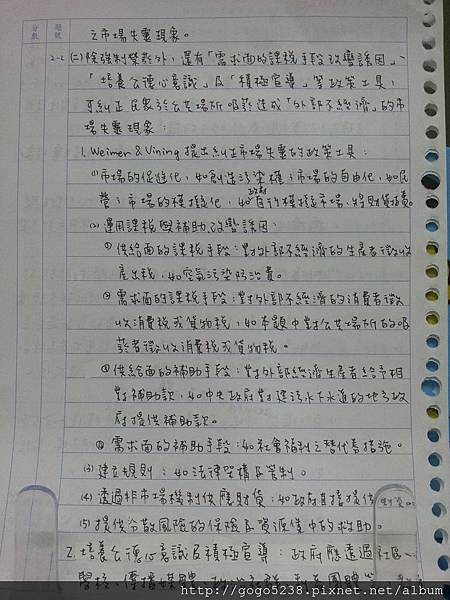 分數
題號
之市場失靈現象。
2-2 (二)除強制禁菸外,還有「需求面的課稅手段改變誘因」、
「培養公德心意識」及「積極宣導」等政策工具,
可糾正民眾於公共場所吸菸造成「外部不經濟」的市
場失靈現象:
1. Weimen & Vining提出糾正市場失靈的政策工具:
(1)市場的促進化,如創造污染權;市場的自由化,如民
營;市場的模擬化,如政府自行模擬市場,將財貨
(2)運用課稅與補助改變誘因:
①供給面的課稅手段:對外部不經濟的生產者徵收
產出稅,如空氣污染防治費。
②需求面的課稅手段:對外部不經濟的消費者徵
收消費稅或貨物稅,如本題中對公共場所的吸
菸者徵收消費稅或貨物稅。
③供給面的補助手段:對外部經濟生產者給予相
對補助款,如中央政府對建污水下水道的地方政
府提供補助款。
④需求面的補助手段:如社會福利之替代券措施。
(3)建立規則:如法律架構及管制。
(4)透過非市場機制供應財貨:如政府直接提供
(5)提供分散風險的保險及資源集中的救助。
2.培養公德心意識及積極宣導:政府應透過社區、
學校、傳播媒體、政治社群、利益團體
http://gogo5238.pixnet.net/album